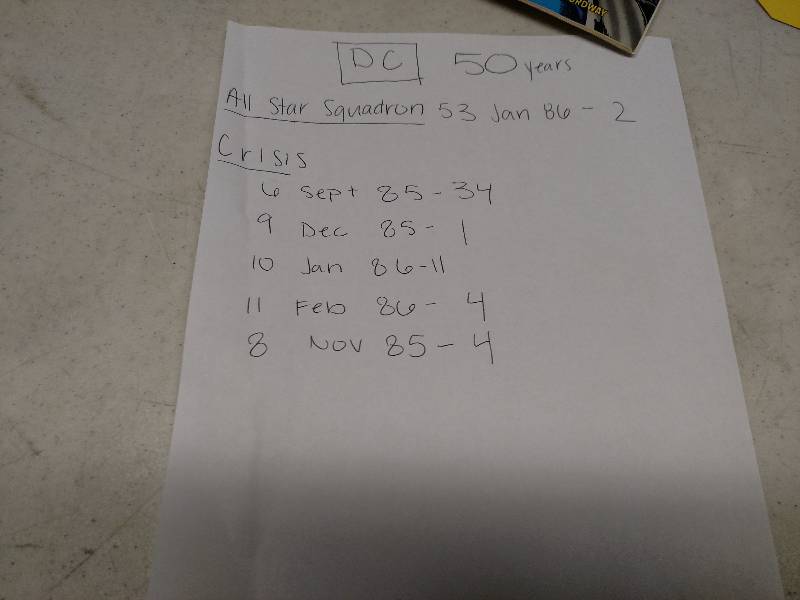 ORDWAY
DC 50 years
All Star Squadron 53 Jan 86 - 2
Crisis
6 Sept 85 - 34
9 Dec 85 - 1
10 Jan 86 - 11
11 Feb 86 - 4
8 Nov 85 - 4